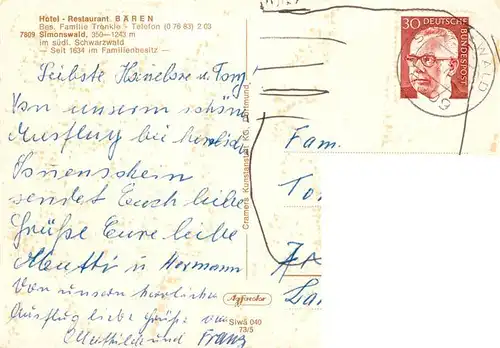 Hotel - Restaurant BÄREN
Bes. Familie Trenkle - Telefon (0 76 83) 2 03
7809 Simonswald, 350—1243 m
im südl. Schwarzwald
— Seit 1634 im Familienbesitz —
Liebste Hannelore u. Tony!
Von unserm schönen
Ausflug bei herrlich
Sonnenschein
sendet Euch liebe
Grüße Eure liebe
Mutti u Hermann
Von unsern herrlichen
Ausflug liebe Grüße von
Mathilde und Franz
Cramers Kunstanstalt KG, Dortmund
Agfacolor
Siwa 040
73/5
30 DEUTSCHE
BUNDESPOST
WALD
Fam.
To